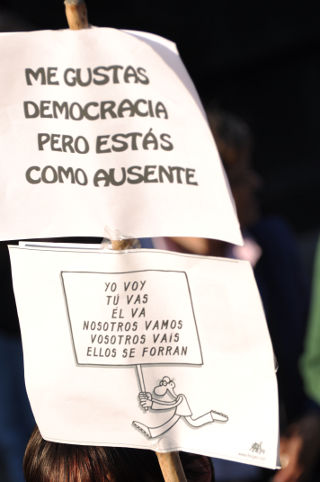 ME GUSTAS
DEMOCRACIA
PERO ESTÁS
COMO AUSENTE
YO VOY
TÚ VAS
ÉL VA
NOSOTROS VAMOS
VOSOTROS VAIS
ELLOS SE FORRAN